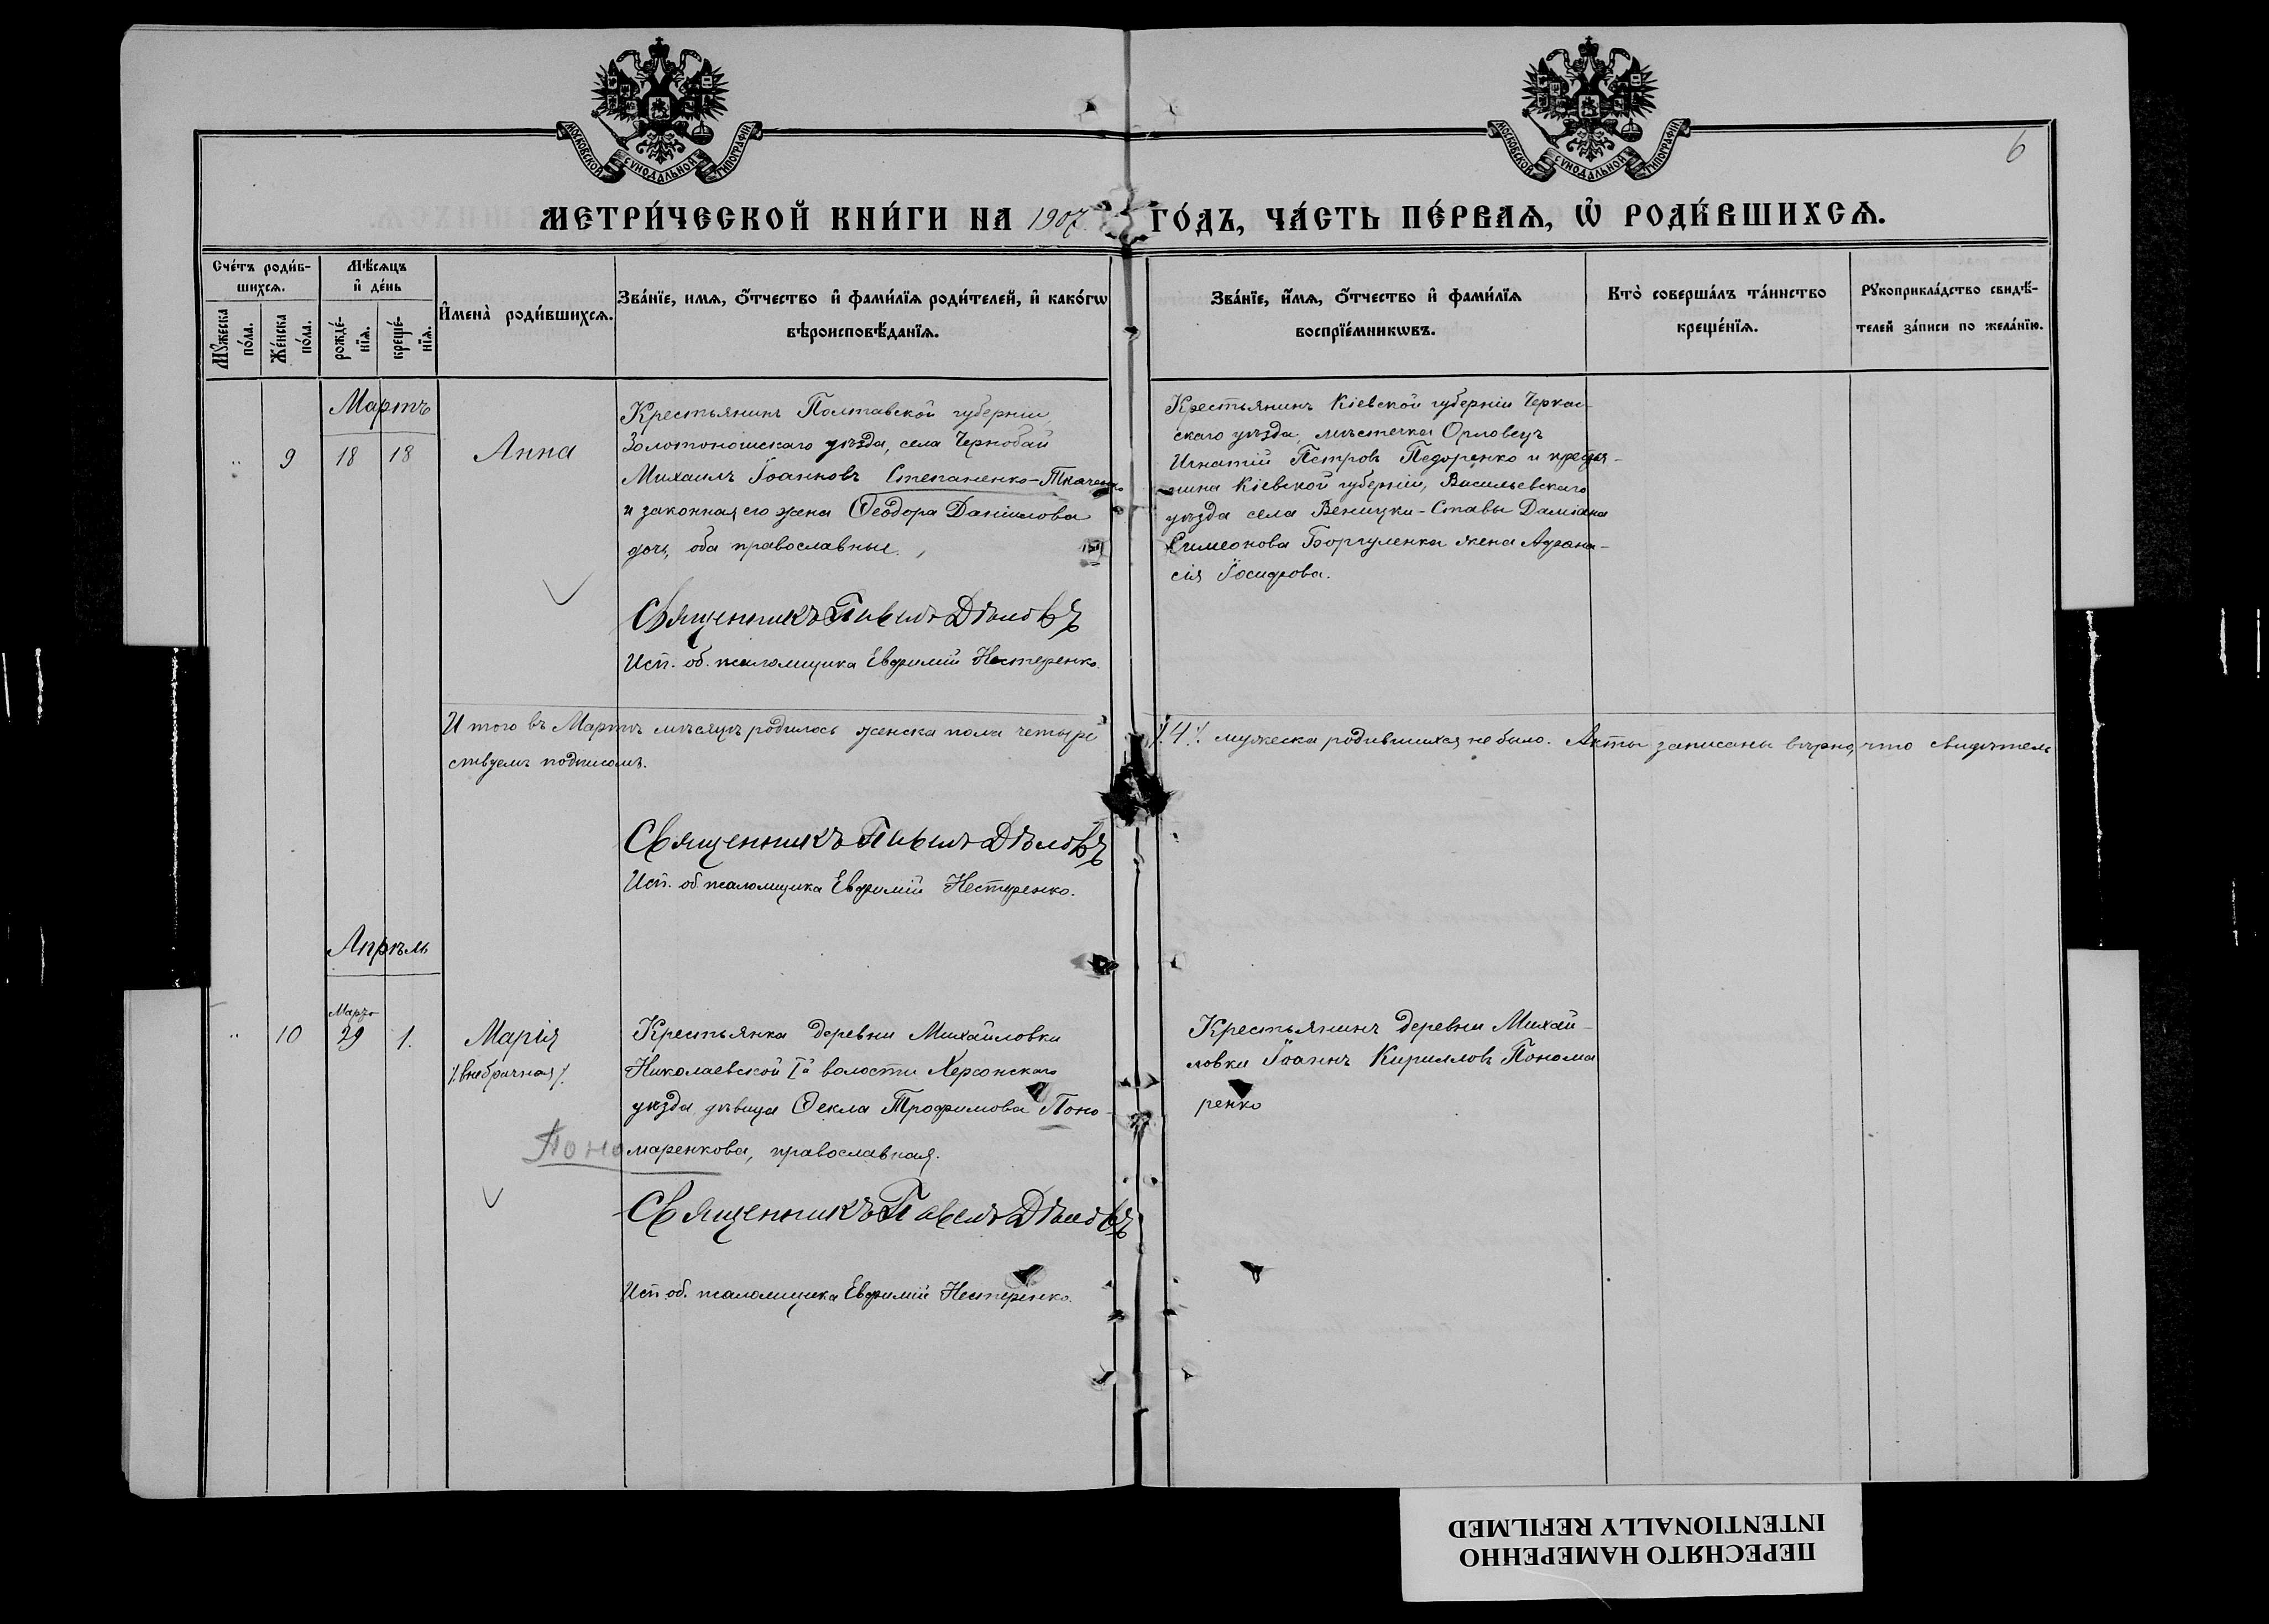 МОСКОВСКОЙ СУНОДАЛЬНОЙ ТИПОГРАФІИ
МОСКОВСКОЙ СУНОДАЛЬНОЙ ТИПОГРАФІИ
6
МЕТРИ́ЧЕСКОЙ КНИ́ГИ НА 1907 ГО́ДЪ, ЧА́СТЬ ПЕ́РВАѦ, Ѡ҆ РОДИ́ВШИХСѦ.
Сче́тъ роди́в-
шихсѧ.
Мꙋ́жеска по́ла.
Же́нска по́ла.
Мѣ́сѧцъ
и҆ де́нь
рожде́-
нїѧ.
креще́-
нїѧ.
И҆мена̀ роди́вшихсѧ.
Зва́нїе, имѧ, ѻ҆́тчество и҆ фами́лїѧ роди́телей, и҆ како́гѡ
вѣроисповѣ́данїѧ.
Зва́нїе, и҆́мѧ, ѻ҆́тчество и҆ фами́лїѧ
воспрїе́мникѡвъ.
Кто̀ соверша́лъ та́инство
креще́нїѧ.
Рꙋкоприкла́дство свидѣ́-
телей за́писи по жела́нїю.
Мартъ
„ 9 18 18 Анна
Крестьянинъ Полтавской губерніи
Золотоношскаго уѣзда, села Чернобай
Михаилъ Іоанновъ Степаненко-Ткаченко
и законная его жена Ѳеодора Даніилова
дочь, оба православные.
Священникъ Павелъ Дѣловъ
Исп. об. псаломщика Евфимій Нестеренко.
Крестьянинъ Кіевской губерніи Черкас-
скаго уѣзда, мѣстечка Орловецъ
Игнатій Петровъ Педоренко и крестья-
нина Кіевской губерніи, Васильевскаго
уѣзда села Веницки-Ставы Даміана
Симеонова жена Афана-
сія Іосифова.
Итого въ Мартѣ мѣсяцѣ родилось женска пола четыре ٪4٪ мужеска родившихся не было. Акты записаны вѣрно, что свидѣтель
ствуемъ подписомъ.
Священникъ Павелъ Дѣловъ
Исп. об псаломщика Евфимій Нестеренко.
Апрѣль
Марта
„ 10 29 1. Марія
٪внебрачная٪
Крестьянка деревни Михайловки
Николаевской Iй волости Херсонскаго
уѣзда дѣвица Ѳекла Трофимова Поно-
Поно маренкова, православная.
Священникъ Павелъ Дѣловъ
Исп об. псаломщика Евфимій Нестеренко.
Крестьянинъ деревни Михай-
ловки Іоаннъ Кирилловъ Понома
ренко
ПЕРЕСНЯТО НАМЕРЕННО
INTENTIONALLY REFILMED